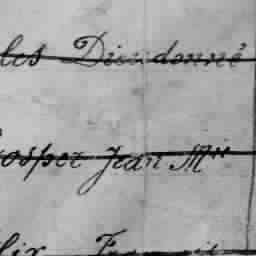 les Dieudonné
rosper Jean Mie
lix François